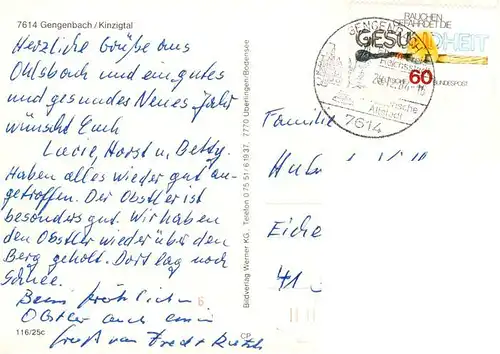 7614 Gengenbach/Kinzigtal
Herzliche Grüße aus
Ohlsbach und ein gutes
und gesundes Neues Jahr
wünscht Euch
Lucie, Horst u. Betty.
Haben alles wieder gut an-
getroffen. Der Obstler ist
besonders gut. Wir haben
den Obstler wieder über den
Berg geholt. Dort lag noch
Schnee.
Beim fröhlichen
Obstler auch ein
Gruß von Fred +
116/25c
CP
Bildverlag Werner KG, Telefon 0 75 51/6 19 37, 7770 Überlingen/Bodensee
RAUCHEN
GEFÄHRDET DIE
GESUNDHEIT
60
BUNDESPOST
GENGENBACH
Altstadt
7614
Familie
Hube
Eiche
41